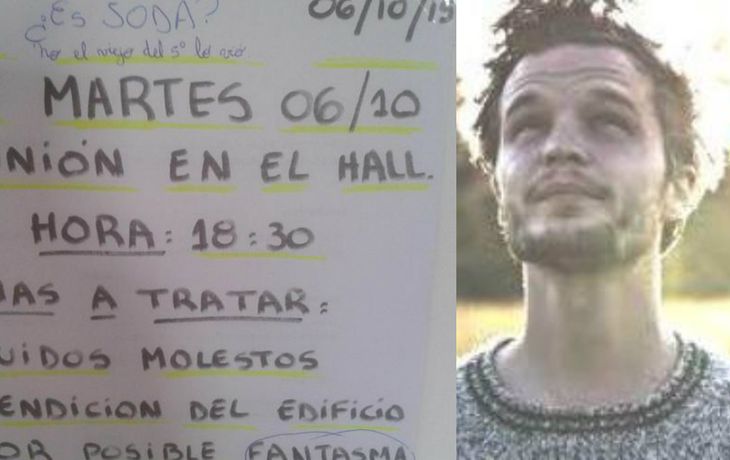 ¿Es SODA?
06/10/15
no el viejo del 5º lo
MARTES 06/10
NIÓN EN EL HALL.
HORA: 18:30
MAS A TRATAR:
UIDOS MOLESTOS
ENDICION DEL EDIFICIO
OR POSIBLE FANTASMA